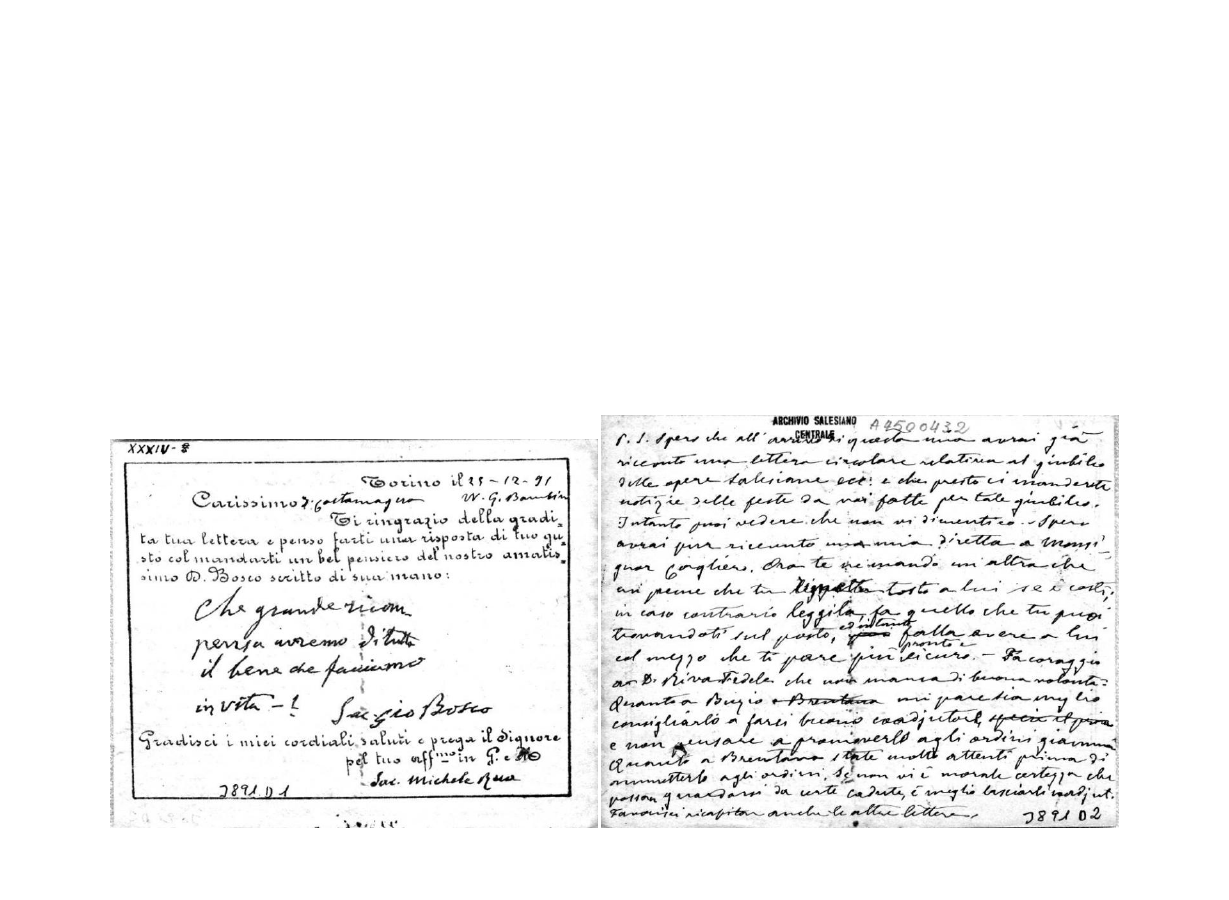 XXXIV-8
Torino il 25-12-91
Carissimo D. Costamagna W. G. Bambino
Ti ringrazio della gradi=
ta tua lettera e penso farti una risposta di tuo gu=
sto col mandarti un bel pensiero del nostro amatis=
simo D. Bosco scritto di sua mano:
Che grande ricom
pensa avremo di tutto
il bene che facciamo
in vita - !
Sac Gio Bosco
Gradisci i miei cordiali saluti e prega il Signore
pel tuo aff.mo in G. e M
Sac. Michele Rua
3891 D 1
ARCHIVIO SALESIANO
CENTRALE
A4500432
P. S. Spero che all'arrivo di questa mia avrai già
ricevuto una lettera circolare relativa al giubileo
delle opere Salesiane ecc. e che presto ci manderete
notizie delle feste da voi fatte per tale giubileo.
Intanto puoi vedere che non vi dimentico. Spero
avrai pur ricevuto una mia diretta a Monsi=
gnor Cagliero. Ora te ne mando un'altra che
mi preme che tu tosto a lui se è costì;
in caso contrario leggila, fa quello che tu puoi
trovandoti sul posto, ed intanto falla avere a lui
col mezzo che ti pare più pronto e sicuro. - Fa coraggio
a D. Riva Fedele che non manca di buona volontà.
Quanto a Brentana mi pare sia meglio
consigliarlo a farsi buono coadjutore,
e non pensare a promoverlo agli ordini giammai
Quanto a Brentana state molto attenti prima di
ammetterlo agli ordini. Se non vi è morale certezza che
possan guardarsi da certe cadute, è meglio lasciarli coadjut.
Favorisci ricapitar anche le altre lettere.
3891 D2